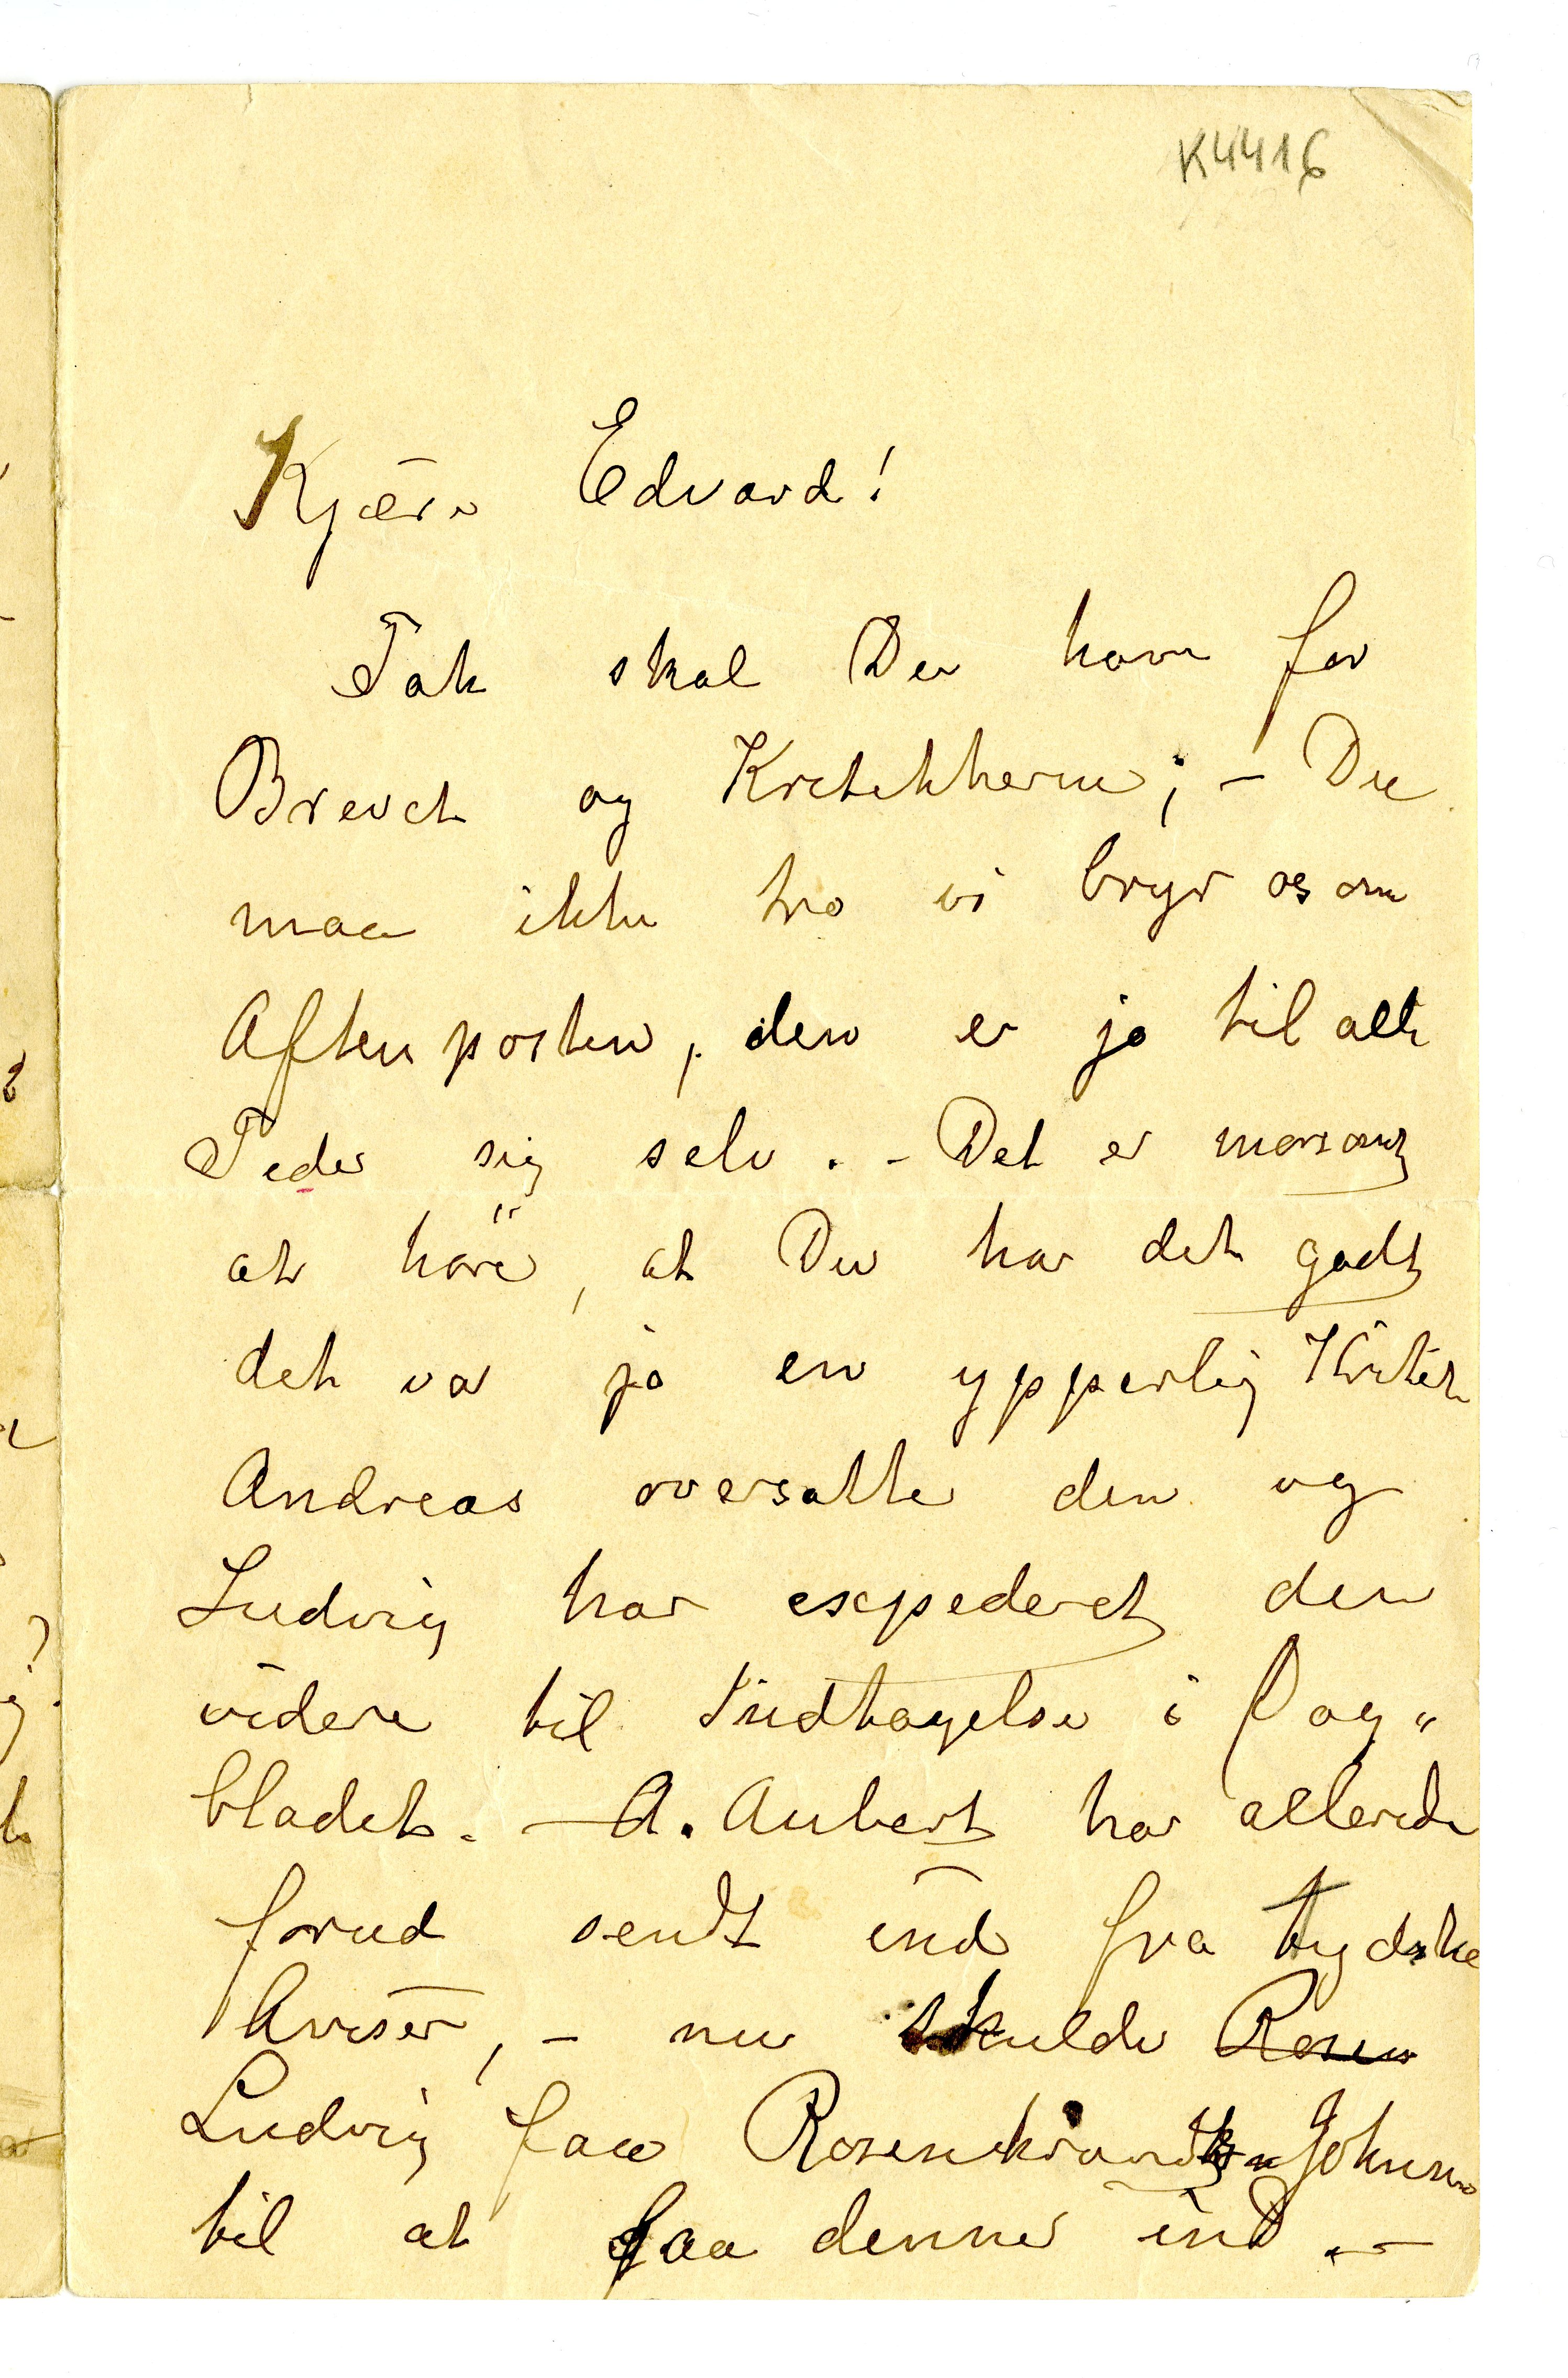 K4416
Kjære Edvard!
Tak skal Du have for
Brevet og Kritikkerne; – Du
maa ikke tro vi bryr os om
Aftenposten, den er jo til alle
Tider sig selv. – Det er morsomt
at høre, at Du har det godt
det var jo en ypperlig Kritik
Andreas oversatte den og
Ludvig har expederet den
videre til Indtagelse i Dag„
bladet. – A. Aubert har allerede
forud sendt ind fra tydske
Aviser, – nu skulde Rosen
Ludvig faa Rosenkrantz Johnsen
til at faa denne ind. –